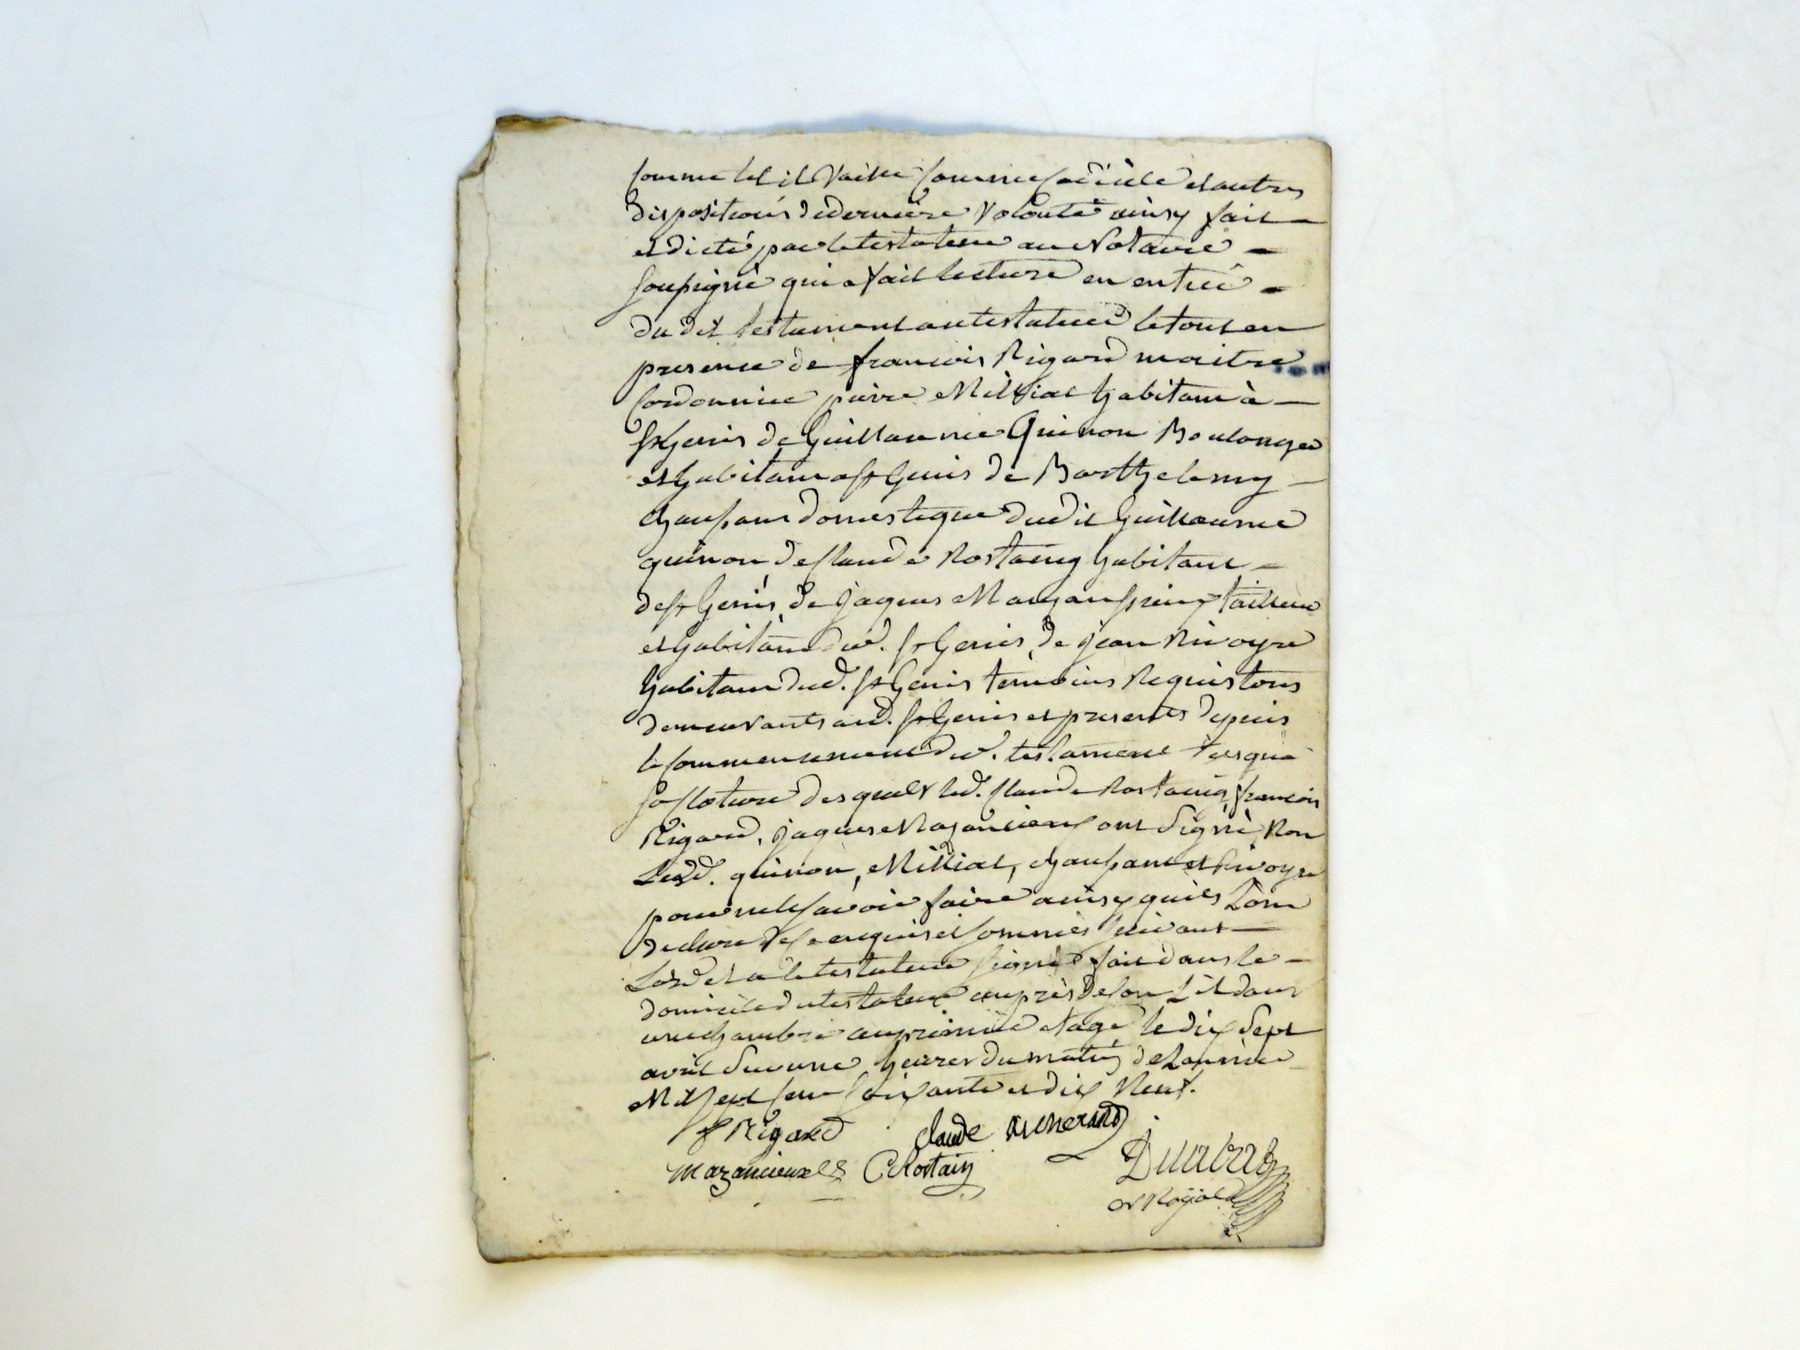 comme tel il vaille comme codicile et autres
dispositions de derniere volonté ainsy fait
et dicté par le testateur au Notaire
soussigné qui a fait lecture en entier
du dit testament au testateur le tout en
presence de francois Rigard maitre
Cordonnier pierre Milliat habitant à
st Genis de Guillaume Quinon Boulanger
et habitant a st Genis de Barthelemy
chaussant domestique dudit Guillaume
quinon de Claude Rostaing habitant
de st Genis de Jaques tailleur
et habitant dud. st Genis, de jean Rivoyre
habitant dud. st Genis temoins Requis tous
demeurants aud. st Genis et presents depuis
le commencement dud. testament jusqua
sa cloture desquels led. Claude Rostaing, francois
Rigard, jaques Mazancieux ont signé, Non
Lesd. quinon, Milliat, chaussant et Rivoyre
pour ne le savoir faire ainsy quils L'ont
declare de ce enquis et sommés suivant
Lord. et a le testateur signé fait dans le
domicile du testateur auprès de son Lit dans
une chambre au premier etage le dix sept
avril sur une heures du matin de L'année
Mil sept cent soixante et dix Neuf.
f Rigard claude
Mazancieux C Rostaing
Nt Royal